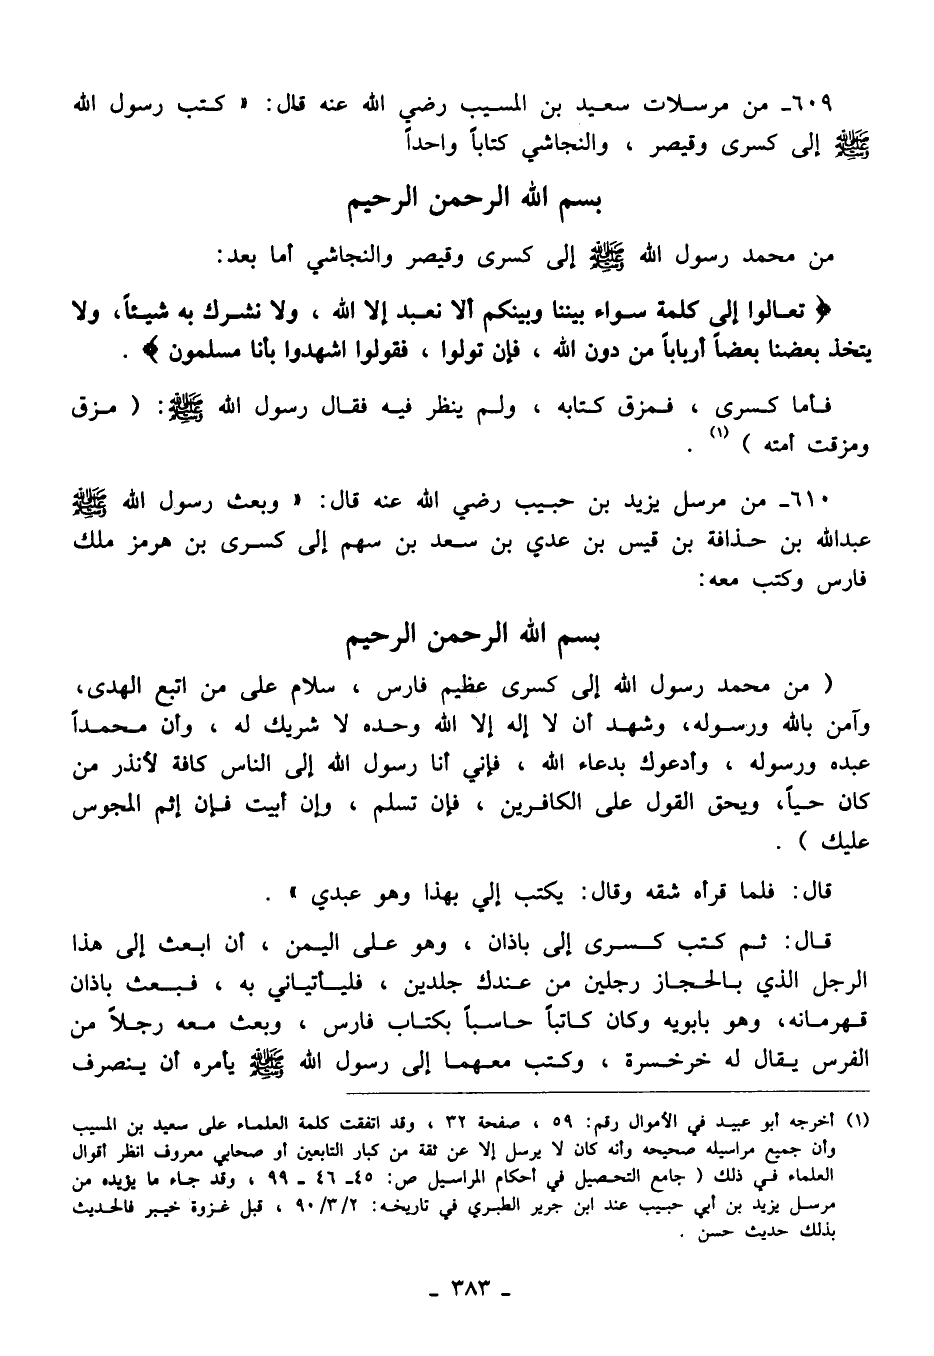 ٦٠٩ـ من مرسلات سعيد بن المسيب رضي الله عنه قال: « كتب رسول الله
ﷺ إلى كسرى وقيصر ، والنجاشي كتاباً واحداً
بسم الله الرحمن الرحيم
من محمد رسول الله ﷺ إلى كسرى وقيصر والنجاشي أما بعد:
﴿ تعالوا إلى كلمة سواء بيننا وبينكم ألا نعبد إلا الله ، ولا نشرك به شيئاً، ولا
يتخذ بعضنا بعضاً أرباباً من دون الله ، فإن تولوا ، فقولوا اشهدوا بأنا مسلمون ﴾ .
فأما كسرى ، فمزق كتابه ، ولم ينظر فيه فقال رسول الله ﷺ: ( مزق
ومزقت أمته ) (١) .
٦١٠ـ من مرسل يزيد بن حبيب رضي الله عنه قال: « وبعث رسول الله ﷺ
عبدالله بن حذافة بن قيس بن عدي بن سعد بن سهم إلى كسرى بن هرمز ملك
فارس وكتب معه:
بسم الله الرحمن الرحيم
( من محمد رسول الله إلى كسرى عظيم فارس ، سلام على من اتبع الهدى،
وآمن بالله ورسوله، وشهد أن لا إله إلا الله وحده لا شريك له ، وأن محمداً
عبده ورسوله ، وأدعوك بدعاء الله ، فإني أنا رسول الله إلى الناس كافة لأنذر من
كان حياً، ويحق القول على الكافرين ، فإن تسلم ، وإن أبيت فإن إثم المجوس
عليك ) .
قال: فلما قرأه شقه وقال: يكتب إلي بهذا وهو عبدي » .
قال: ثم كتب كسرى إلى باذان ، وهو على اليمن ، أن ابعث إلى هذا
الرجل الذي بالحجاز رجلين من عندك جلدين ، فليأتياني به ، فبعث باذان
قهرمانه، وهو بابويه وكان كاتباً حاسباً بكتاب فارس ، وبعث معه رجلاً من
الفرس يقال له خرخسرة ، وكتب معهما إلى رسول الله ﷺ يأمره أن ينصرف
(١) أخرجه أبو عبيد في الأموال رقم: ٥٩ ، صفحة ٣٢ ، وقد اتفقت كلمة العلماء على سعيد بن المسيب
وأن جميع مراسيله صحيحه وأنه كان لا يرسل إلا عن ثقة من كبار التابعين أو صحابي معروف انظر أقوال
العلماء في ذلك ( جامع التحصيل في أحكام المراسيل ص: ٤٥ـ ٤٦ ـ ٩٩ ، وقد جاء ما يؤيده من
مرسل يزيد بن أبي حبيب عند ابن جرير الطبري في تاريخه: ٩٠/٣/٢ ، قبل غزوة خيبر فالحديث
بذلك حديث حسن .
ـ ٣٨٣ ـ